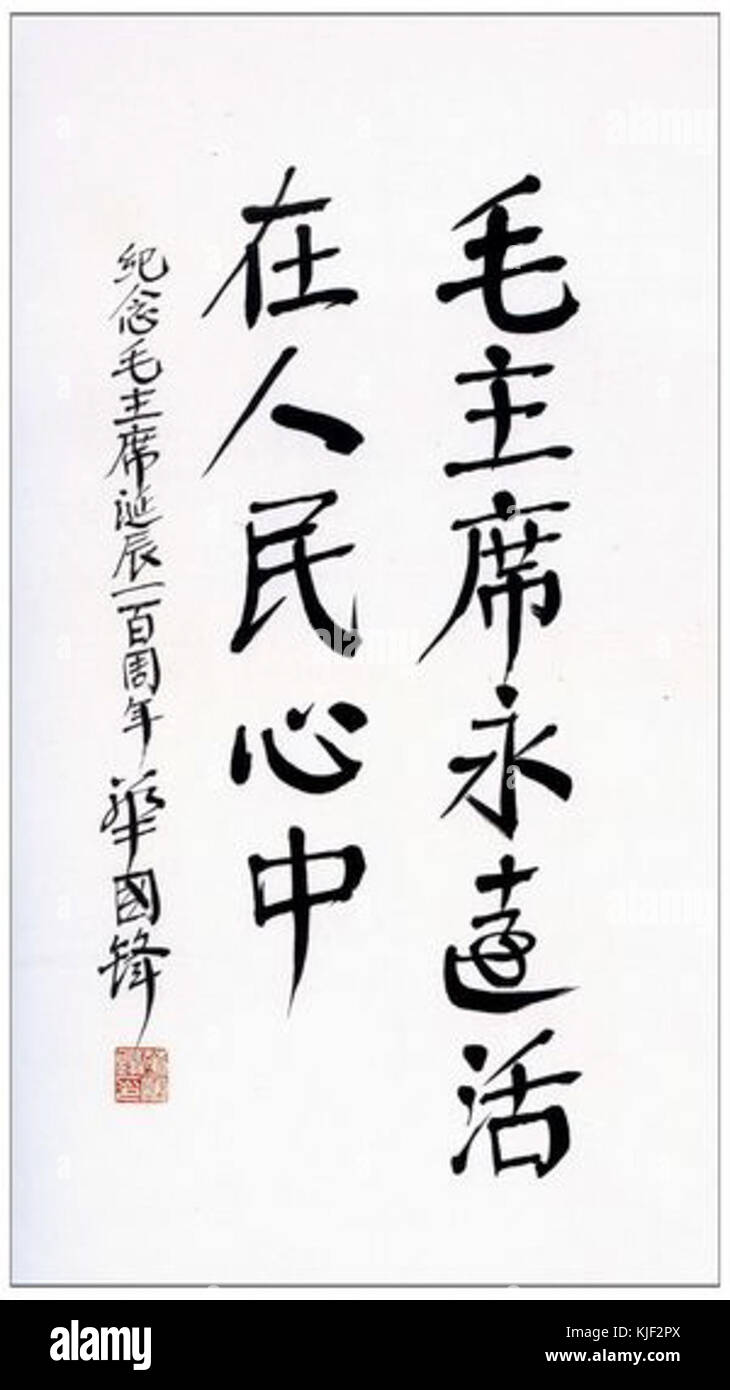 毛主席永遠活
在人民心中
纪念毛主席诞辰一百周年 華國锋
alamy
alamy
alamy
a alamy
Image ID: KJF2PX
www.alamy.com